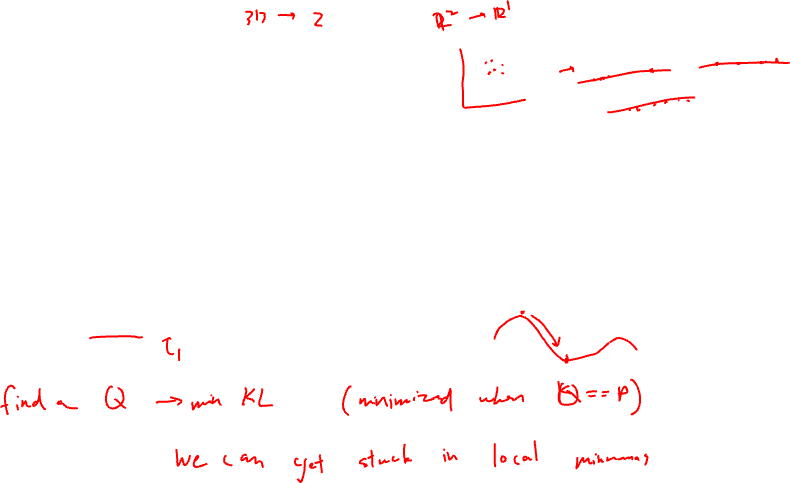 3D → 2
R² → R¹
τ₁
find a Q → min KL (minimized when Q == P)
We can get stuck in local minimums